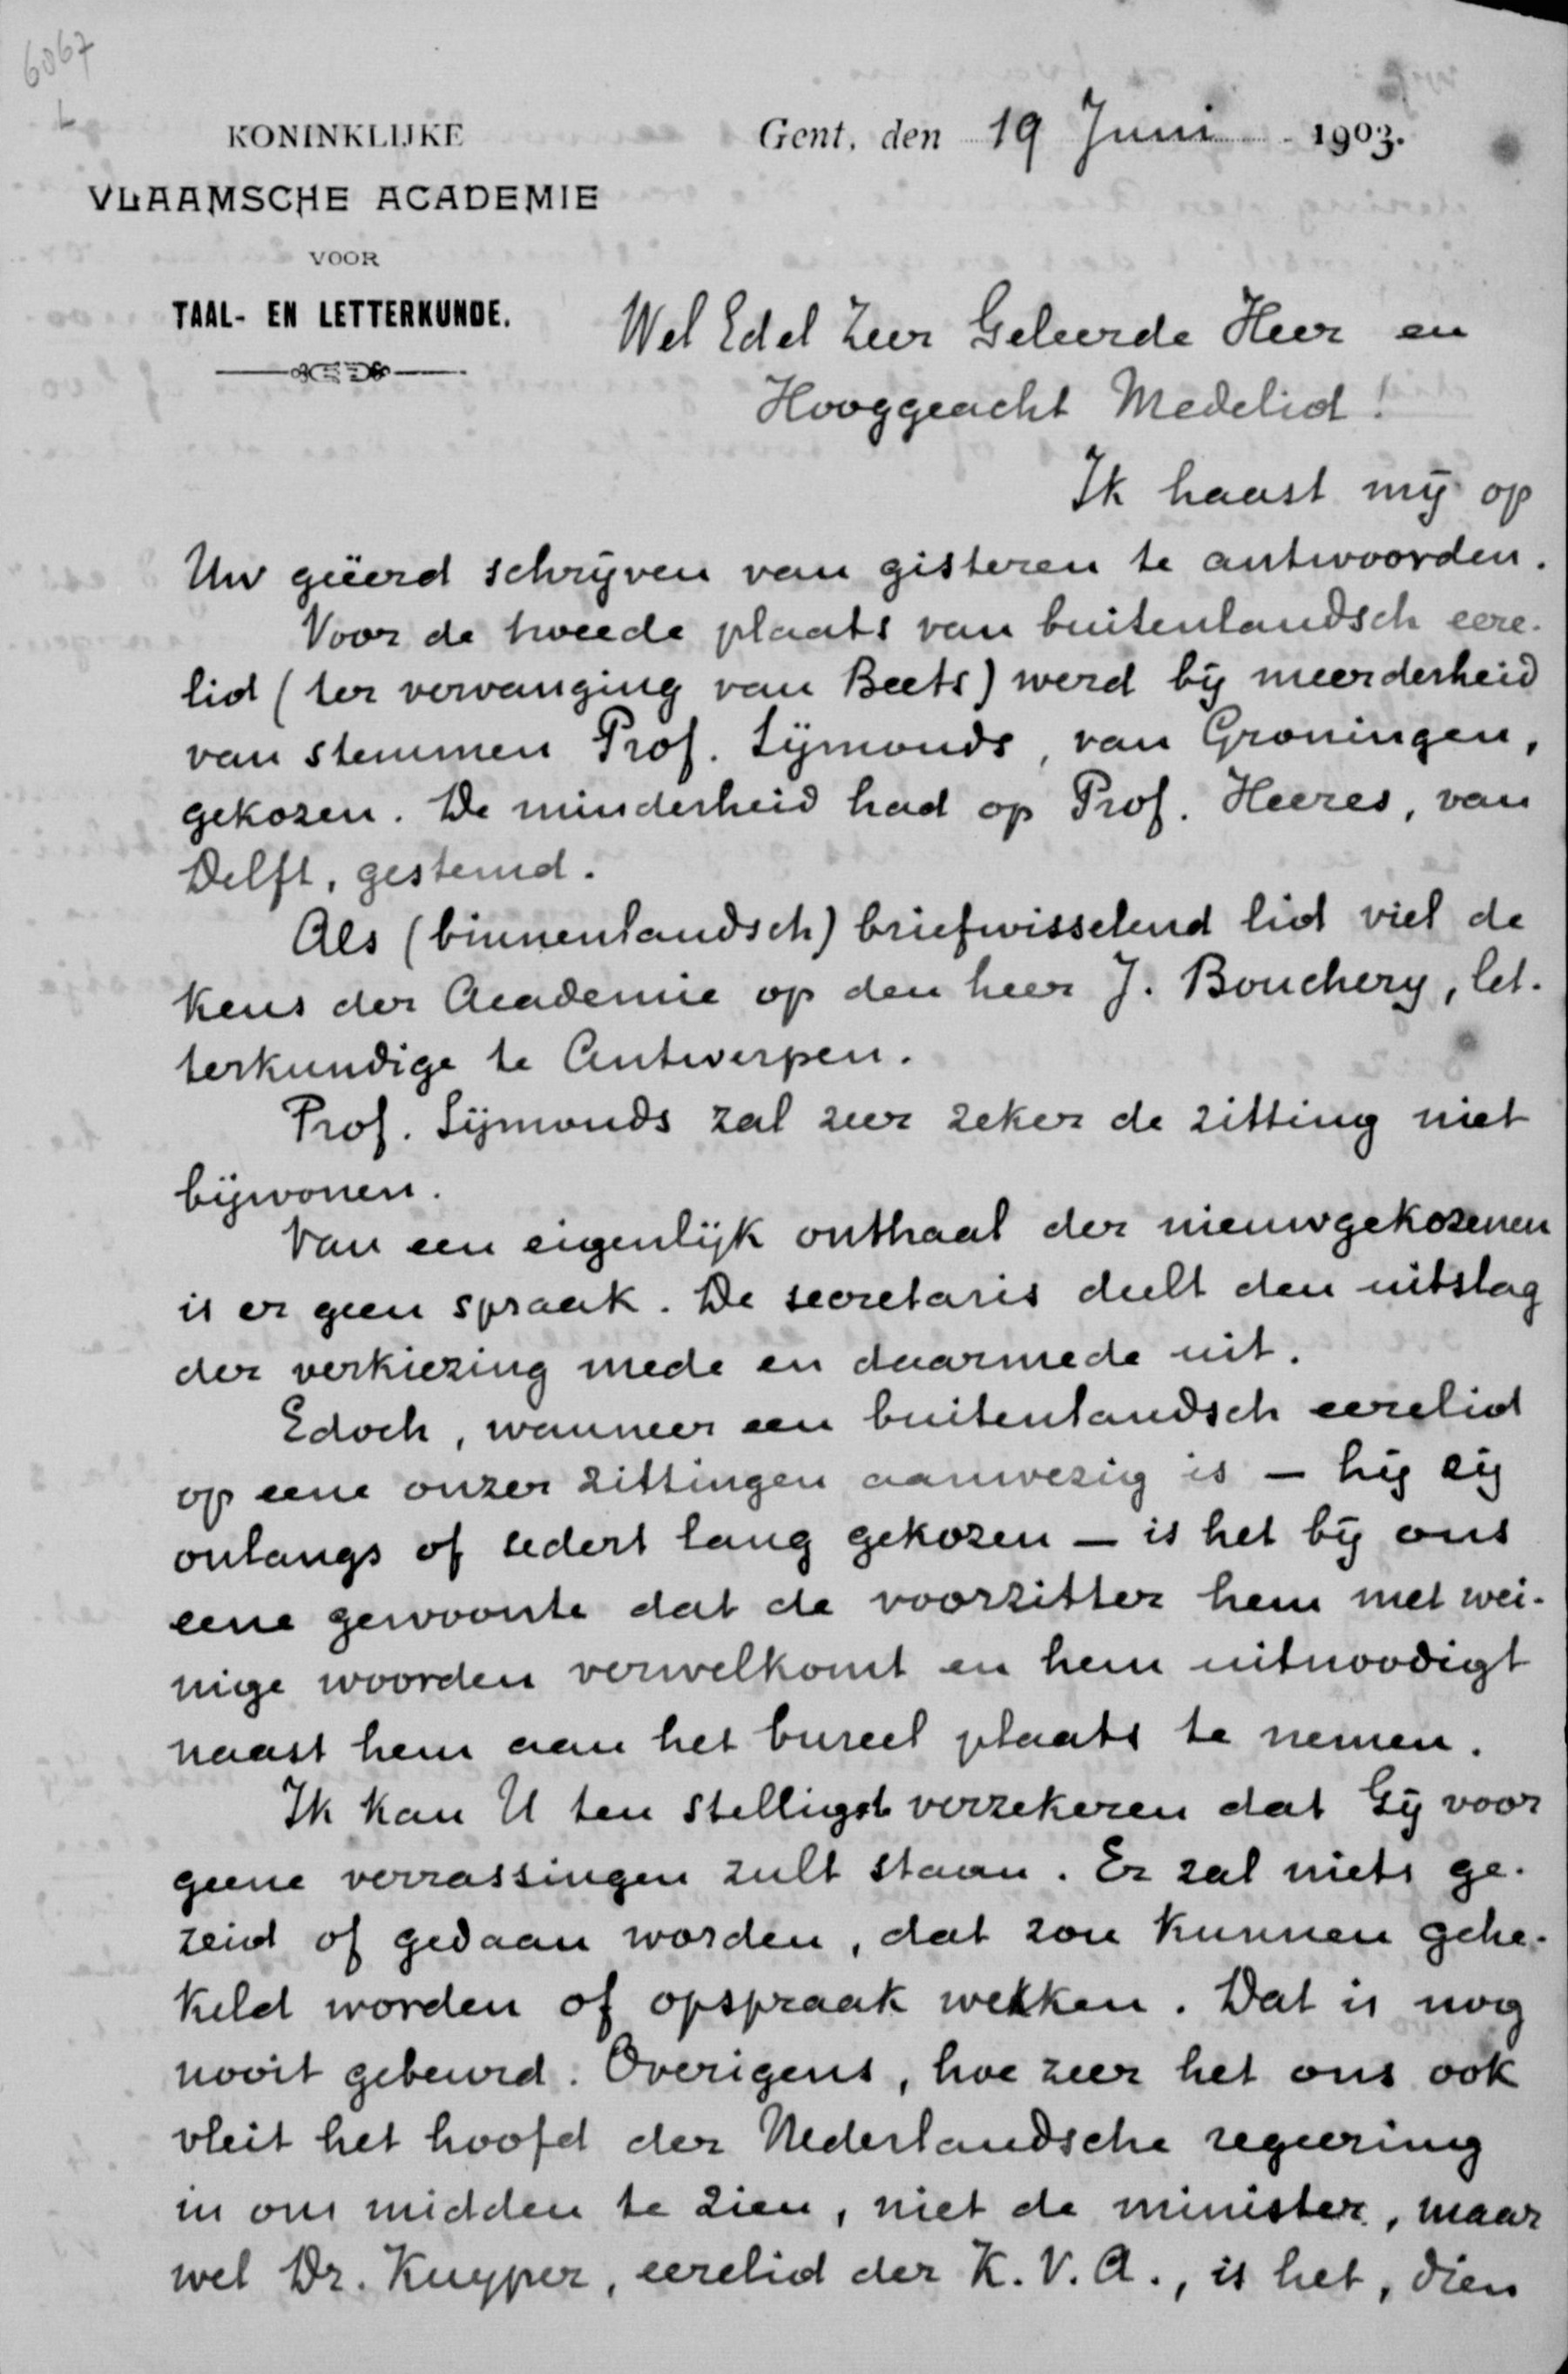 6067
L
KONINKLIJKE
VLAAMSCHE ACADEMIE
VOOR
TAAL- EN LETTERKUNDE.
Gent, den 19 Juni 1903.
Wel Edel Zeer Geleerde Heer en
Hooggeacht Medelid!
Ik haast mij op
Uw geëerd schrijven van gisteren te antwoorden.
Voor de tweede plaats van buitenlandsch eere-
lid (ter vervanging van Beets) werd bij meerderheid
van stemmen Prof. Sijmonds, van Groningen,
gekozen. De minderheid had op Prof. Heeres, van
Delft, gestemd.
Als (binnenlandsch) briefwisselend lid viel de
keus der Academie op den heer J. Bouchery, let-
terkundige te Antwerpen.
Prof. Sijmonds zal zeer zeker de zitting niet
bijwonen.
Van een eigenlijk onthaal der nieuwgekozenen
is er geen spraak. De secretaris deelt den uitslag
der verkiezing mede en daarmede uit.
Edoch, wanneer een buitenlandsch eerelid
op eene onzer zittingen aanwezig is – hij zij
onlangs of sedert lang gekozen – is het bij ons
eene gewoonte dat de voorzitter hem met wei-
nige woorden verwelkomt en hem uitnoodigt
naast hem aan het bureel plaats te nemen.
Ik kan U ten stelligst verzekeren dat Gij voor
geene verrassingen zult staan. Er zal niets ge-
zeid of gedaan worden, dat zou kunnen gehe-
keld worden of opspraak wekken. Dat is nog
nooit gebeurd. Overigens, hoe zeer het ons ook
vleit het hoofd der Nederlandsche regeering
in ons midden te zien, niet de minister, maar
wel Dr. Kuyper, eerelid der K.V.A., is het, dien